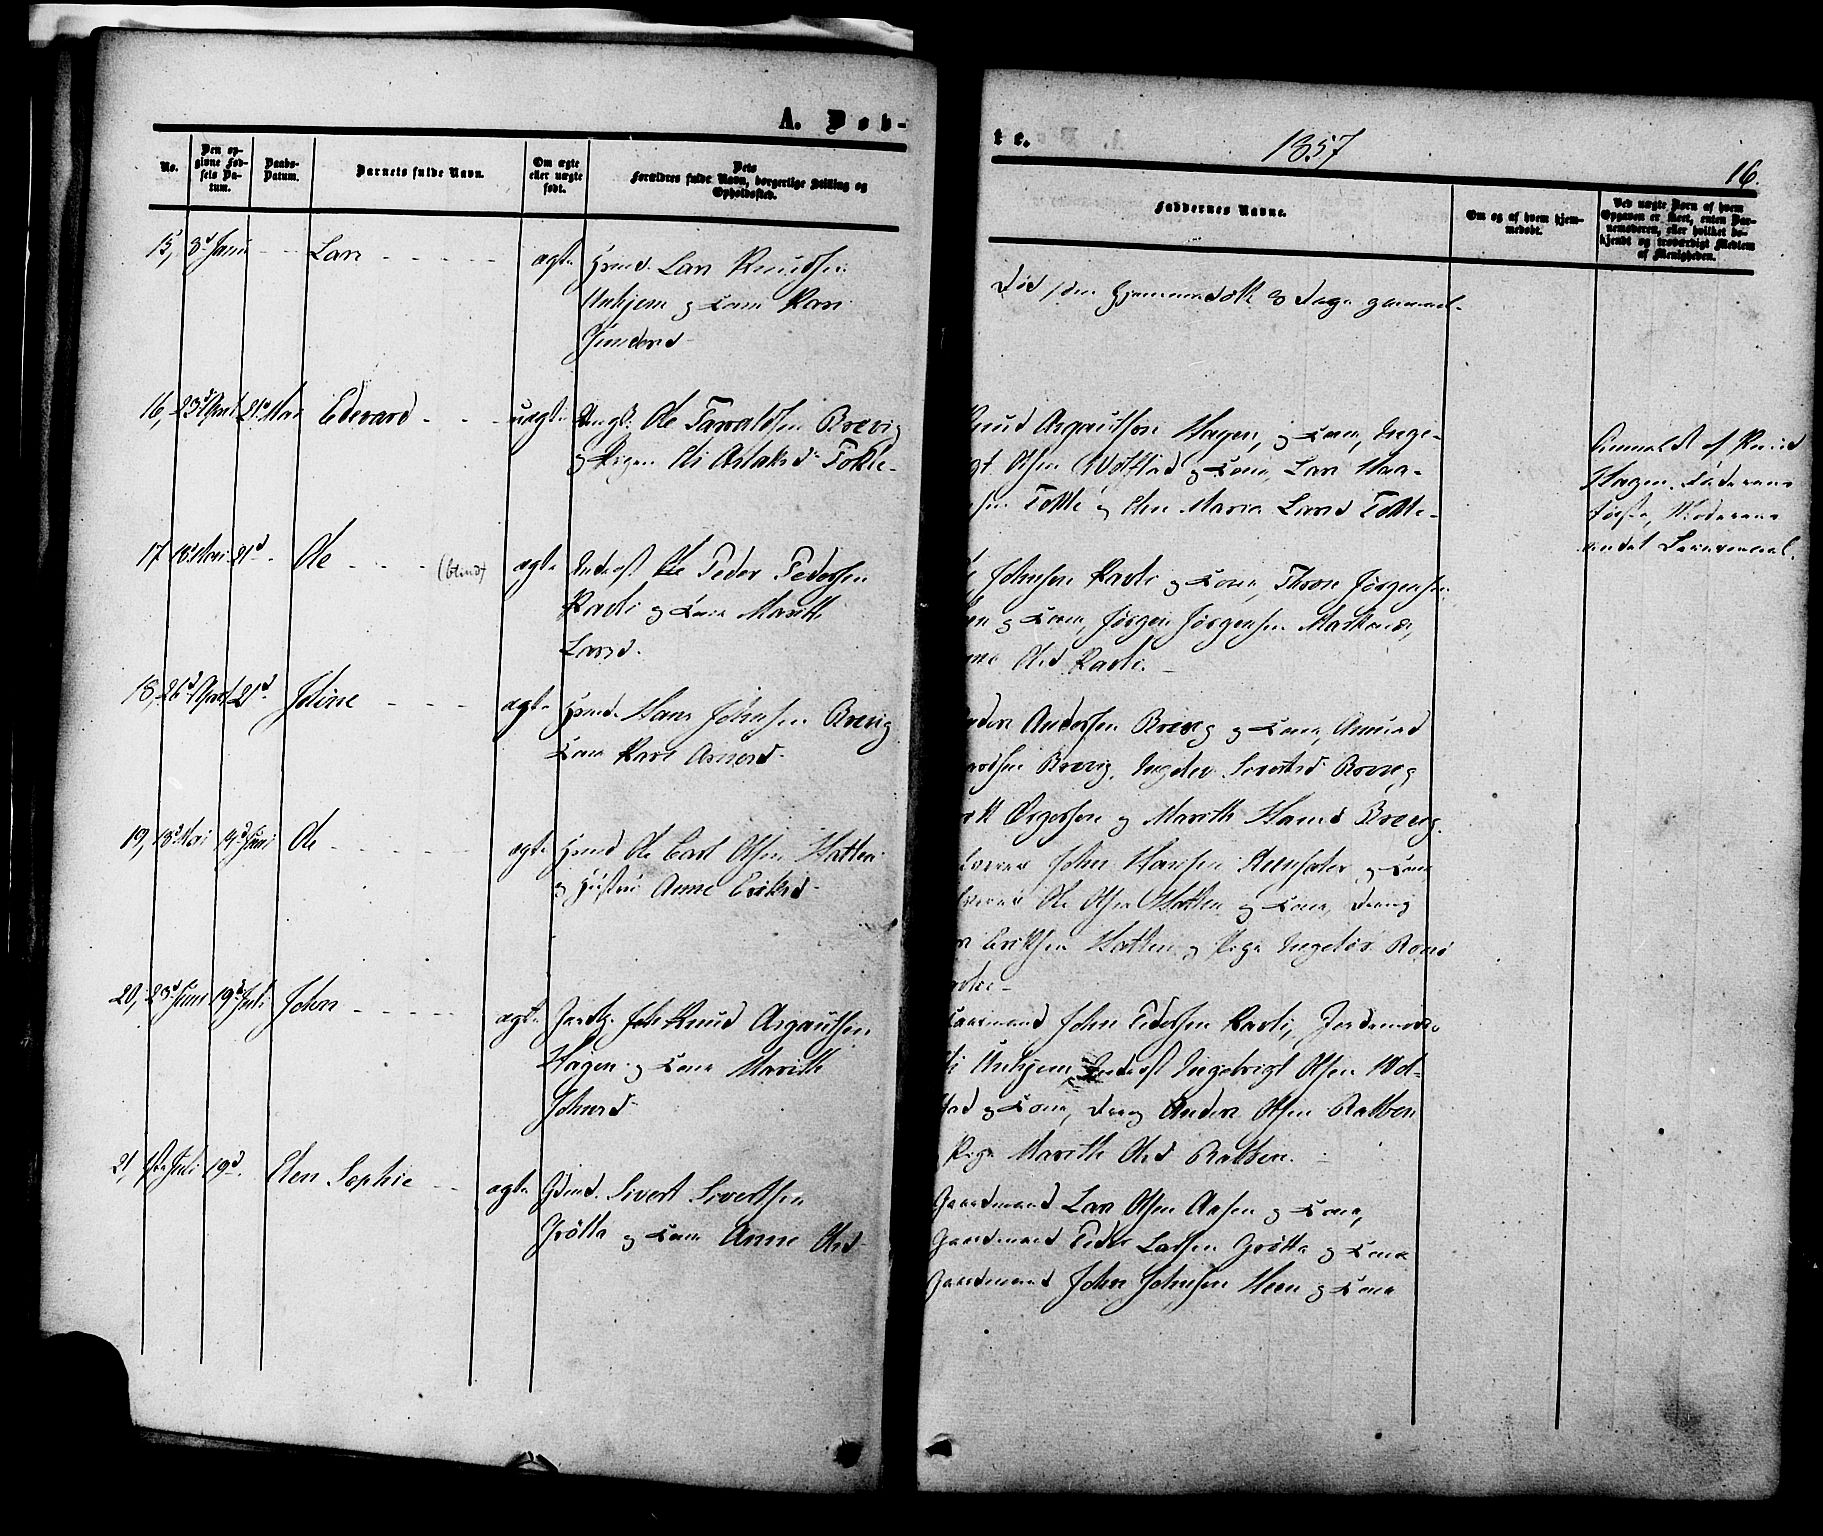 A. Døb-
No.
Den op-
givne Fød-
sels Da-
tum.
Daabs-
Datum.
Barnets fulde Navn.
Om ægte
eller uægte
født.
Dets
Forældres fulde Navn, borgerlige Stilling og
Opholdssted.
15, 3d Juni - - Lars - - - - - ægte Grmd. Lars Knudsen
Unhjem og Kone Kari
Gunders
16, 23d April 21d Mai Edevard - - - uægte Ungk. Ole Tarvaldsen Brevig
og Pigen Eli Aslaksd Tokle-
17 18d Mai 21d - Ole - - - - (blind) ægte Inderst Ole Peder Pedersen
Kavli og Kone Marith
Larsd.
18, 26d April 21d Joline - - - - ægte Grmd. Hans Johnsen Brevig
Kone Kari Arnesd-
19, 18d Mai 14d Juni Ole - - - - - ægte Grmd Ole Carl Olsen Hatten
og Hustru Anne Eriksd-
20, 23d Juni 19d Juli John - - - - - ægte Knud Asgautsen
Hagen og Kone Marith
Johnsd-
21, 1ste Juli 19d. Elen Sophie - - ægte Gdmd. Sivert Sivertsen
Grøtta og Kone Anne Olsd-
te.
1857
16.
Faddernes Navne.
Om og af hvem hjem-
medøbt.
Ved uægte Børn af hvem
Opgaven er skeet, enten Bar-
nemoderen, eller hvilket be-
kjendt og troværdigt Medlem
af Menigheden.
Død uden Hjemmedaab 3 Dage gammel.
Knud Asgautsen Hagen, og Kone, Inge-
Olsen Wolstad og Kone, Lars
Tokle og Elen Maria Larsd Tokle-
Anmeldt af Knud
Hagen. Faderens
første, Moderens
andet Leiermaal.
Johnsen Kavli og Kone, Thron Jørgensen
og Kone, Jørgen Jørgensen
Olsd Kavli.
Anders Andersen Brevig og Kone, Amund
Brevig, Ingebor Sivertsd Brevig
og Marith Hansd Brevig.
John Hansen og Kone
Ole Olsen Hatten og Kone, Dreng
Eriksen Hatten og Pige Ingebor
Gaardmand John Pedersen Kavli, Jordemoder
Eli Unhjem, Inderst Ingebrigt Olsen Wol-
stad og Kone, Dreng Anders Olsen Rabben
Pige Marith Olsd Rabben. -
Gaardmand Lars Olsen Aasen og Kone,
Gaardmand Peder Larsen Grøtta og Kone
Gaardmand John Johnsen Heen og Kone